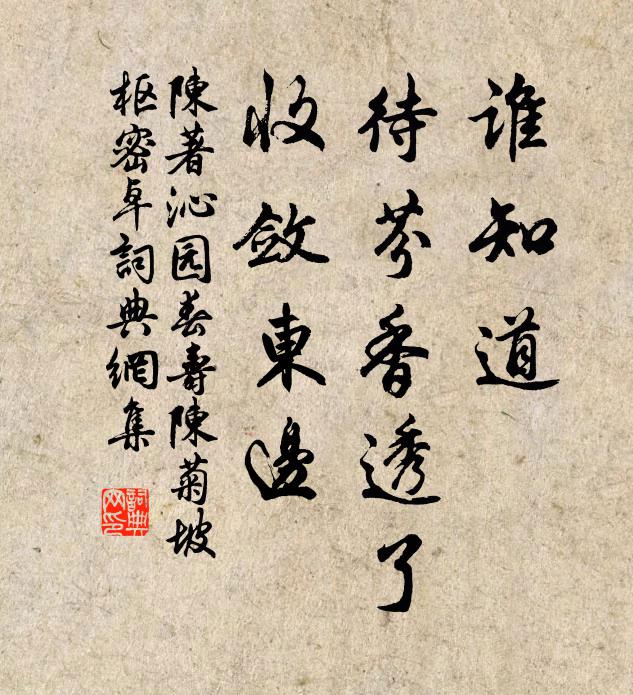 誰知道
待芬香透了
收斂東邊
陳著沁园春壽陳菊坡
枢密卓詞典網集
詞典网印